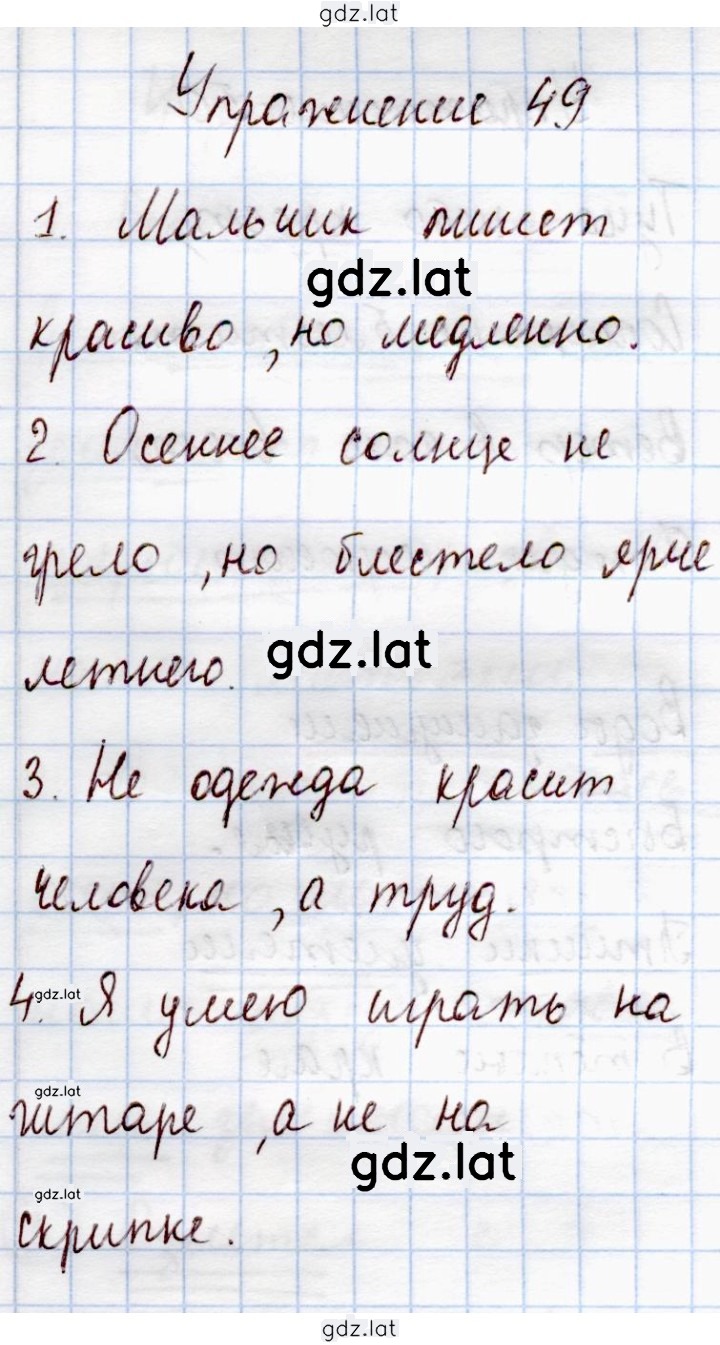 gdz.lat
Упражнение 49
1. Мальчик пишет
gdz.lat
красиво, но медленно.
2. Осеннее солнце не
грело, но блестело ярче
gdz.lat
летнего.
3. Не одежда красит
человека, а труд.
4. Я умею играть на
gdz.lat
gdz.lat
гитаре, а не на
gdz.lat
gdz.lat
скрипке.
gdz.lat